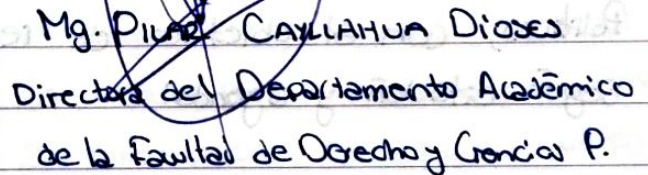 Mg. Pilar CAYLLAHUA Dioses
Directora del Departamento Académico
de la Facultad de Derecho y Ciencias P.